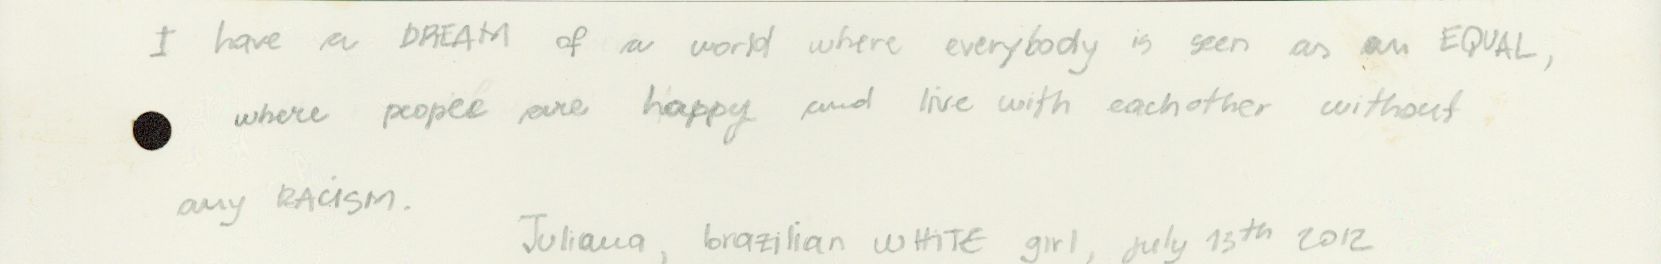 I have a DREAM of a world where everybody is seen as an EQUAL,
where people are happy and live with eachother without
any RACISM.
Juliana, brazilian WHITE girl, july 13th 2012